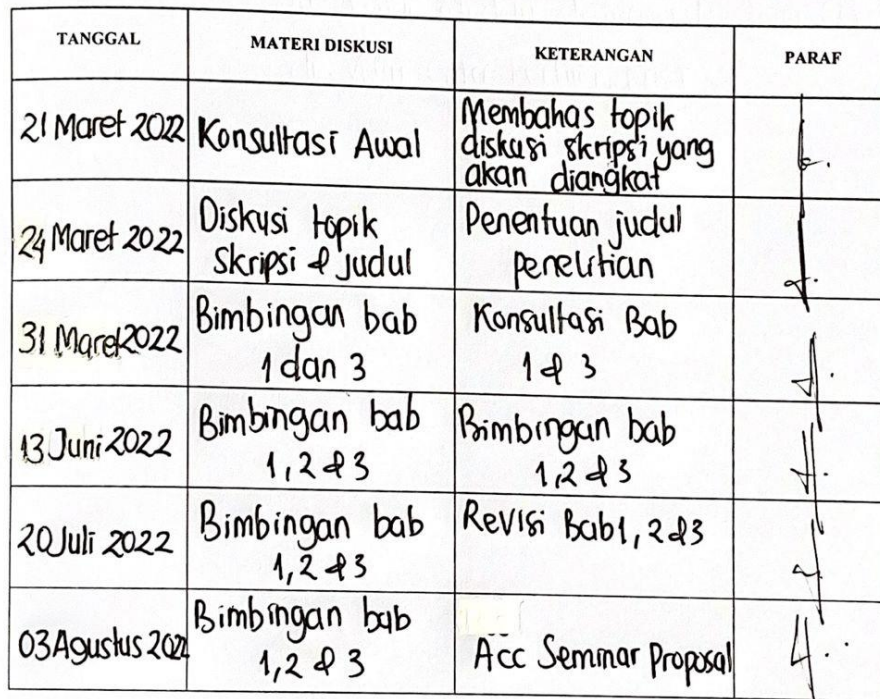 TANGGAL MATERI DISKUSI KETERANGAN PARAF
21 Maret 2022 Konsultasi Awal Membahas topik
diskusi skripsi yang
akan diangkat
24 Maret 2022 Diskusi topik
Skripsi & judul
Penentuan judul
penelitian
31 Maret 2022 Bimbingan bab
1 dan 3
Konsultasi Bab
1 & 3
13 Juni 2022 Bimbingan bab
1, 2 & 3
Bimbingan bab
1, 2 & 3
20 Juli 2022 Bimbingan bab
1, 2 & 3
Revisi Bab 1, 2 & 3
03 Agustus 2022 Bimbingan bab
1, 2 & 3
Acc Seminar Proposal